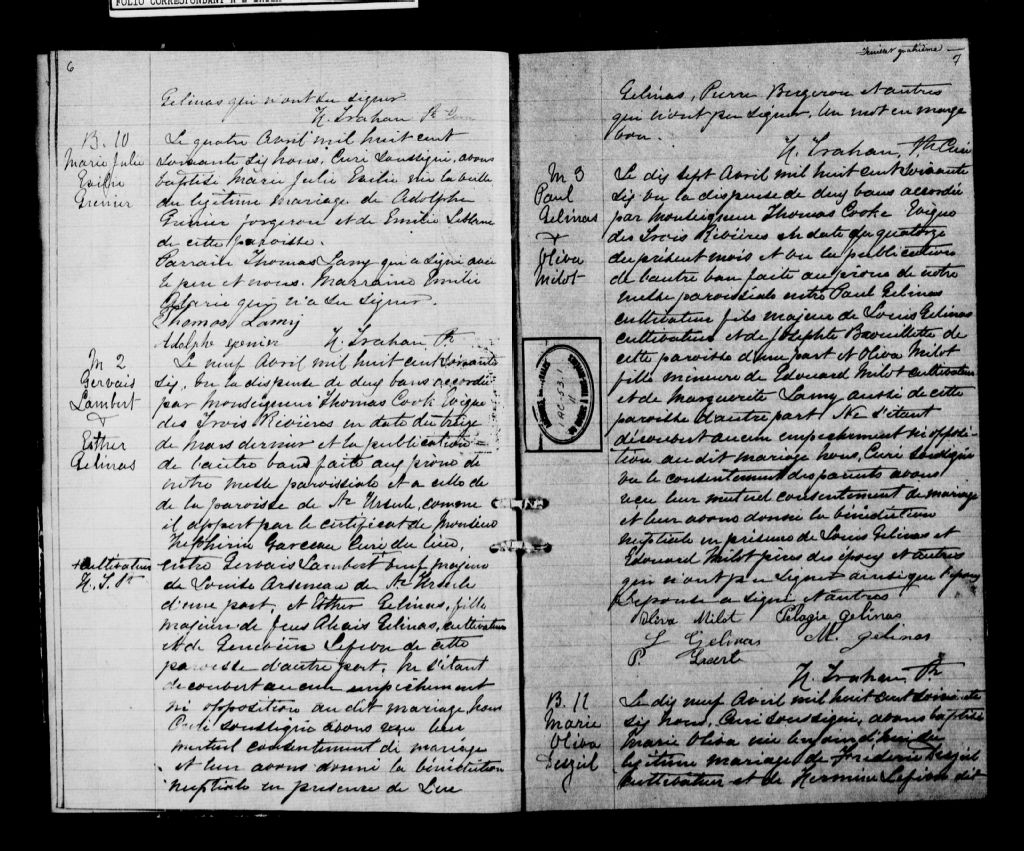 FOLIO CORRESPONDANT
6
Gelinas qui n'ont su signer
N. Trahan Ptr Curé
B. 10
Marie Julie
Exilie
Grenier
Le quatre Avril mil huit cent
soixante six nous, Curé soussigné, avons
baptisé Marie Julie Exilie née la veille
du légitime mariage de Adolphe
Grenier forgeron et de Emilie
de cette paroisse.
Parrain Thomas Lamy qui a signé avec
le père et nous. Marraine Emilie
Alarie qui n'a su signer.
Thomas Lamy
Adolphe Grenier N. Trahan Ptr
M 2
Gervais
Lambert
&
Esther
Gelinas
Le neuf Avril mil huit cent soixante
six, vu la dispense de deux bans accordée
par Monseigneur Thomas Cook Evêque
des Trois Rivières en date du treize
de mars dernier et la publication
de l'autre ban faite au prône de
notre messe paroissiale et a celle de
de la paroisse de Ste Ursule, comme
il appert par le certificat de Monsieur
Garceau Curé du lieu,
+ cultivateur
N. T. Ptr
entre Gervais Lambert veuf majeur
de Louise Arseneau de Ste Ursule
d'une part, et Esther Gelinas, fille
majeure de feus Alexis Gelinas, cultivateur
et de Geneviève Lefevre de cette
paroisse d'autre part, ne s'étant
découvert aucun empêchement
ni opposition au dit mariage, nous
Curé soussigné avons reçu leur
mutuel consentement de mariage
et leur avons donné la bénédiction
nuptiale en présence de
Feuillet quatrième
7
Gelinas, Pierre Bergeron et autres
qui n'ont pu signer. Un mot en marge
bon.
N. Trahan, Ptr Curé
M 3
Paul
Gelinas
&
Oliva
Milot
Le dix sept Avril mil huit cent soixante
six vu la dispense de deux bans accordée
par Monseigneur Thomas Cooke Evêque
des Trois Rivières en date du quatorze
du présent mois et vu la publication
de l'autre ban faite au prône de notre
messe paroissiale entre Paul Gelinas
cultivateur fils majeur de Louis Gelinas
cultivateur et de Josephte Brouillette de
cette paroisse d'une part et Oliva Milot
fille mineure de Edouard Milot cultivateur
et de Marguerite Lamy aussi de cette
paroisse d'autre part Ne s'étant
découvert aucun empêchement ni opposi-
tion au dit mariage nous, Curé soussigné
vu le consentement des parents avons
reçu leur mutuel consentement de mariage
et leur avons donné la bénédiction
nuptiale en présence de Louis Gelinas et
Edouard Milot pères des époux et autres
qui n'ont pu signer ainsi que l'époux
L'épouse a signé et autres
Oliva Milot Pelagie Gelinas
L Gelinas M. Gelinas
P.
N. Trahan, Ptr
B. 11
Marie
Oliva
Desziel
Le dix neuf Avril mil huit cent soixante
six nous, Curé soussigné, avons baptisé
Marie Oliva née du
légitime mariage de Frederic Desziel
cultivateur et de Hermine Lefevre dit